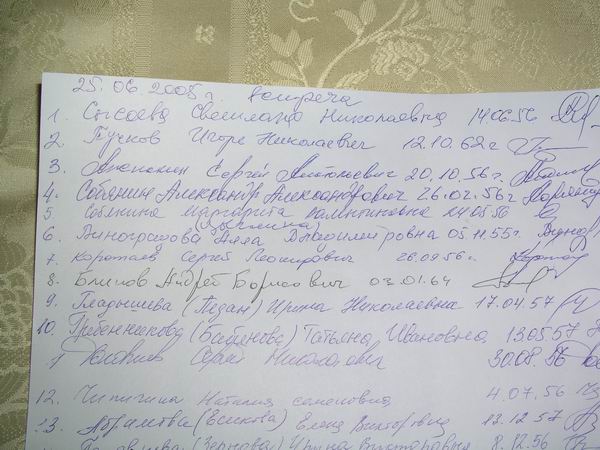 25.06.2005г. встреча
1. Сысоева Светлана Николаевна 14.06.56
2. Пучков Игорь Николаевич 12.10.62г
3. Сергей Анатольевич 20.10.56г.
4. Собянин Александр Александрович 26.02.56г
5 Собянина Маргарита Валентиновна 14.05.56
6. Виноградова Алла Владимировна 05.11.55г.
7. Коротаев Сергей Леонидович 26.09.56г.
8. Блинов Андрей Борисович 03.01.64
9. Гладышева Ирина Николаевна 17.04.57
10. Гребенникова (Бабинова) Татьяна Ивановна 13.05.57
Сергей Николаевич 30.08.56
12. Чипигина Наталия Семеновна 4.07.56
13. (Есикова) Елена Викторовна 13.12.57
(Зернова) Ирина Викторовна 8.12.56